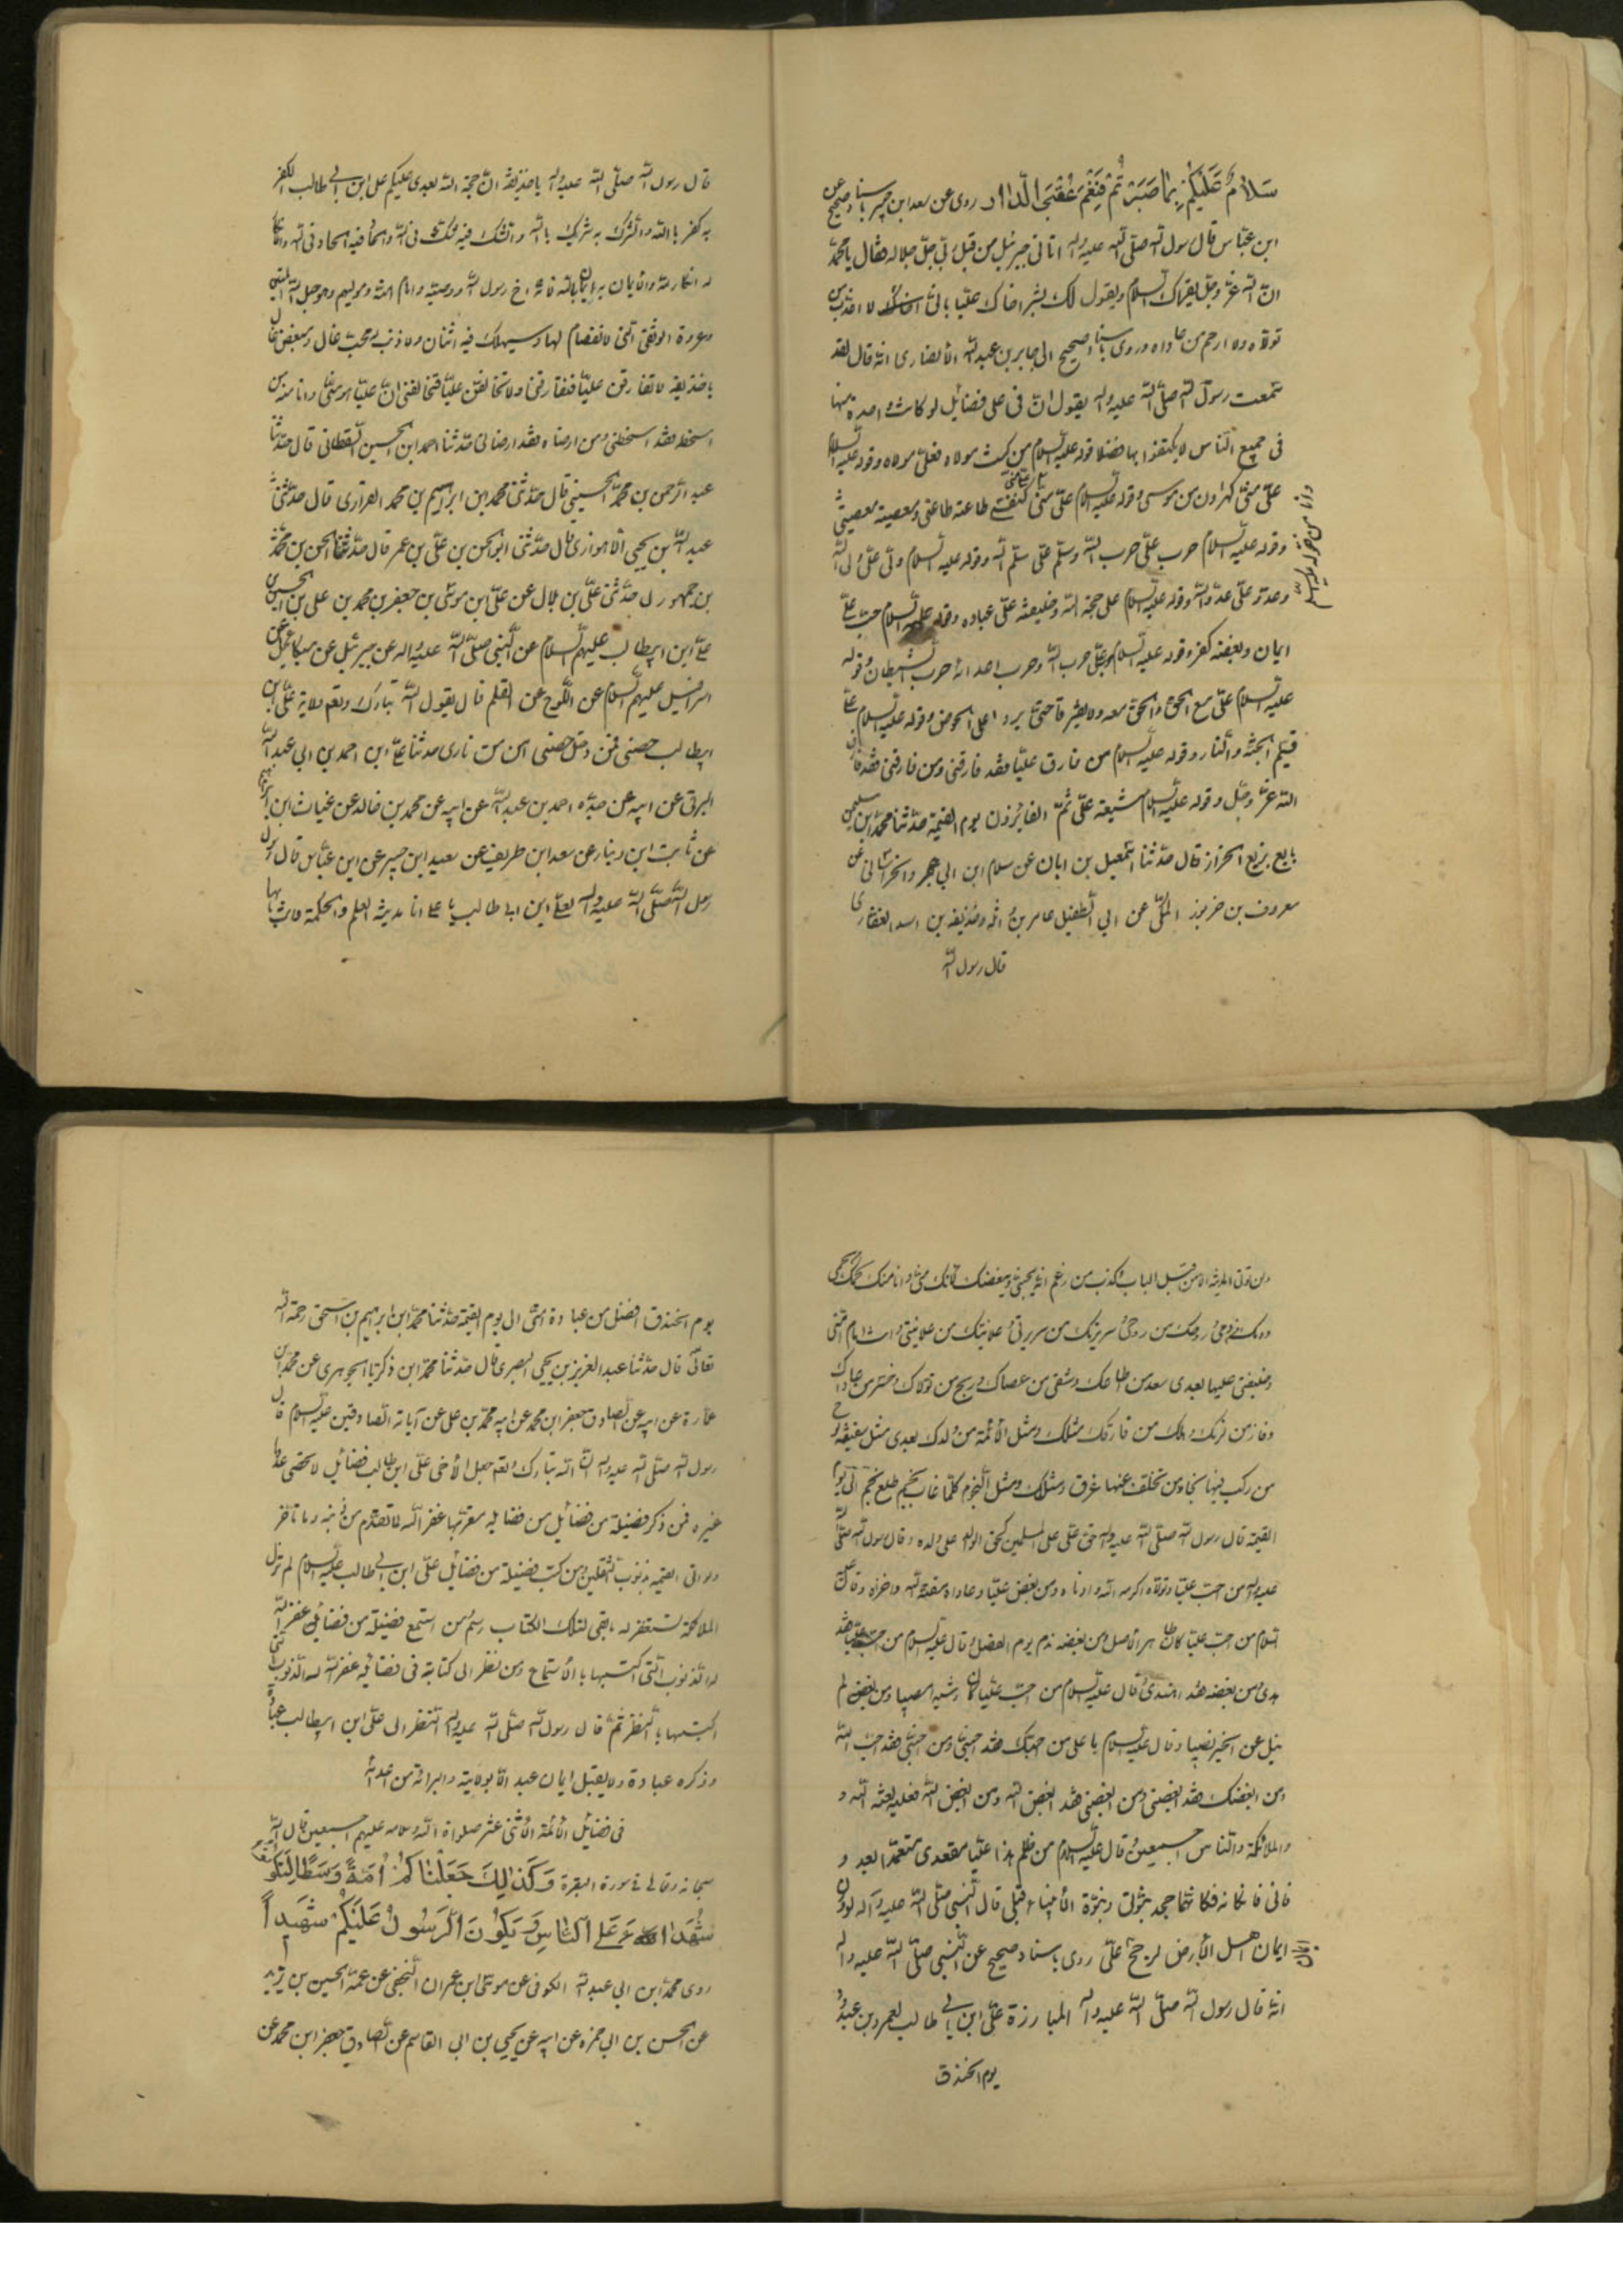 سَلَامٌ عَلَيْكُمْ بِمَا صَبَرْتُمْ فَنِعْمَ عُقْبَى الدَّارِ روى عن سعد ابن جبير باسناد صحيح عن
ابن عباس قال رسول الله صلى الله عليه وآله اتانى جبرئيل من قبل ربى جل جلاله فقال يا محمد
ان الله عز وجل يقرئك السلام ويقول لك بشر اخاك عليا بانى لا اعذب من
تولاه ولا ارحم من عاداه وروى باسناد صحيح الى جابر بن عبد الله الأنصارى انه قال لقد
سمعت رسول الله صلى الله عليه وآله يقول ان فى على فضائل لو كانت واحدة منها
فى جميع الناس لاكتفوا بها فضلا قوله عليه السلام من كنت مولاه فعلى مولاه وقوله عليه السلام
على منى كهارون من موسى وقوله عليه السلام على منى كنفسى طاعته طاعتى ومعصيته معصيتى
وقوله عليه السلام حرب على حرب الله وسلم على سلم الله وقوله عليه السلام ولى على ولى الله
وعدو على عدو الله وقوله عليه السلام على حجة الله وخليفته على عباده وقوله عليه السلام حب على
ايمان وبغضه كفر وقوله عليه السلام حزب على حزب الله وحزب اعدائه حزب الشيطان وقوله
عليه السلام على مع الحق والحق معه ولا يفترقا حتى يردا على الحوض وقوله عليه السلام على
قسيم الجنة والنار وقوله عليه السلام من فارق عليا فقد فارقنى ومن فارقنى فقد فارق
الله عز وجل وقوله عليه السلام شيعة على هم الفائزون يوم القيمة حدثنا محمد ابن
بزيع الخزاز قال حدثنا اسمعيل بن ابان عن سلام ابن ابى الخراسانى عن
معروف بن خربوز المكى عن ابى الطفيل عامر بن واثلة وحذيفة بن اسد الغفارى
قال رسول الله
قال رسول الله صلى الله عليه وآله يا حذيفة ان حجة الله بعدى عليكم على ابن ابى طالب الكفر
به كفر بالله والشرك به شرك بالله والشك فيه شك فى الله والالحاد فيه الحاد فى الله والانكار
له انكار لله والايمان به ايمان بالله فانه اخ رسول الله ووصيه وامام امته وموليهم وهو حبل الله المتين
وعروة الوثقى التى لا انفصام لها وسيهلك فيه اثنان ولا ذنب له محب غال ومبغض قال
يا حذيفة لا تفارقن عليا فتفارقنى ولا تخالفن عليا فتخالفنى ان عليا منى وانا منه من
اسخطه فقد اسخطنى ومن ارضاه فقد ارضانى حدثنا احمد ابن الحسين القطانى قال حدثنا
عبد الرحمن بن محمد الحسينى قال حدثنى محمد ابن ابراهيم بن محمد الفزارى قال حدثنى
عبد الله بن يحيى الاهوازى قال حدثنى ابو الحسن بن على بن عمر قال حدثنا الحسن بن محمد
بن جمهور قال حدثنى على بن بلال عن على ابن موسى بن جعفر بن محمد بن على بن الحسين
على ابن ابيطالب عليهم السلام عن النبى صلى الله عليه وآله عن جبرئيل عن ميكائيل عن
اسرافيل عليهم السلام عن اللوح عن القلم قال يقول الله تبارك وتعالى ولاية على ابن
ابيطالب حصنى فمن دخل حصنى امن من نارى حدثنا على ابن احمد بن ابى عبد الله
البرقى عن ابيه عن جده احمد بن عبد الله عن ابيه عن محمد بن خالد عن غياث ابن ابراهيم
عن ثابت ابن دينار عن سعد ابن طريف عن سعيد ابن جبير عن ابن عباس قال
رسول الله صلى الله عليه وآله لعلى ابن ابى طالب يا على انا مدينة العلم والحكمة وانت بابها
ولن تؤتى المدينة الا من قبل الباب وكذب من زعم انه يحبنى ويبغضك لانك منى وانا منك لحمك لحمى
ودمك دمى وروحك من روحى وسريرتك من سريرتى وعلانيتك من علانيتى وانت امام امتى
وخليفتى عليها بعدى سعد من اطاعك وشقى من عصاك وربح من تولاك وخسر من عاداك
وفاز من لزمك وهلك من فارقك مثلك ومثل الأئمة من ولدك بعدى مثل سفينة نوح
من ركب فيها نجا ومن تخلف عنها غرق ومثلك ومثل النجوم كلما غاب نجم طلع نجم الى يوم
القيمة قال رسول الله صلى الله عليه وآله حق على على المسلمين كحق الوالد على ولده وقال رسول الله صلى الله
عليه وآله من احب عليا وتولاه اكرمه الله وادناه ومن ابغض عليا وعاداه مقته الله واخزاه وقال عليه
السلام من احب عليا كان طاهر الأصل ومن ابغضه ندم يوم الفصل وقال عليه السلام من احب عليا فقد
هدى ومن بغضه فقد اعتدى وقال عليه السلام من احب عليا كان رشيدا مصيبا ومن ابغض لم
ينل من الخير نصيبا وقال عليه السلام يا على من احبك فقد احبنى ومن احبنى فقد احب الله
ومن ابغضك فقد ابغضنى ومن ابغضنى فقد ابغض الله ومن ابغض الله فعليه لعنة الله و
والملائكة والناس اجمعين وقال عليه السلام من ظلم هذا عليا مقعدى متعمدا بعد و
فاتى فكانما جحد بنبوتى ونبوة الأنبياء قبلى قال النبى صلى الله عليه وآله لو وزن
ايمان اهل الأرض لرجح على روى باسناد صحيح عن النبى صلى الله عليه وآله
انه قال رسول الله صلى الله عليه وآله المبارزة على ابن ابى طالب لعمرو بن عبد ود
يوم الخندق
يوم الخندق افضل من عبادة امتى الى يوم القيمة حدثنا محمد ابن ابراهيم بن اسحق رحمة الله
تعالى قال حدثنا عبد العزيز بن يحيى البصرى قال حدثنا محمد ابن زكريا الجوهرى عن محمد ابن
عمارة عن ابيه عن الصادق جعفر ابن محمد عن ابيه محمد بن على عن آبائه الصادقين عليه السلام قال
رسول الله صلى الله عليه وآله ان الله تبارك وتعالى جعل لأخى على ابن ابيطالب فضائل لا تحصى عددا
غيره فمن ذكر فضيلة من فضائل من فضايله مقرا بها غفر الله ما تقدم من ذنبه وما تاخر
ولو اتى القيمة بذنوب الثقلين ومن كتب فضيلة من فضائل على ابن ابى طالب عليه السلام لم تزل
الملائكة تستغفر له ما بقى لتلك الكتاب رسم ومن استمع فضيلة من فضائله غفر الله
له الذنوب التى اكتسبها بالأستماع ومن نظر الى كتابة فى فضائله غفر الله له الذنوب التى
اكتسبها بالنظر ثم قال رسول الله صلى الله عليه وآله النظر الى على ابن ابيطالب عبادة
وذكره عبادة ولا يقبل ايمان عبد الا بولايته والبرائة من اعدائه
فى فضايل الأئمة الأثنى عشر صلواة الله وسلامه عليهم اجمعين قال الله
سبحانه وتعالى فى سورة البقرة وَكَذٰلِكَ جَعَلْنَاكُمْ اُمَّةً وَسَطًا لِتَكُونُوا
شُهَدَاءَ عَلَى النَّاسِ وَيَكُونَ الرَّسُولُ عَلَيْكُمْ شَهِيدًا
روى محمد ابن ابى عبد الله الكوفى عن موسى ابن عمران النخعى عن عمه الحسين بن يزيد
عن الحسن بن ابى حمزه عن ابيه عن يحيى بن ابى القاسم عن الصادق جعفر ابن محمد عن